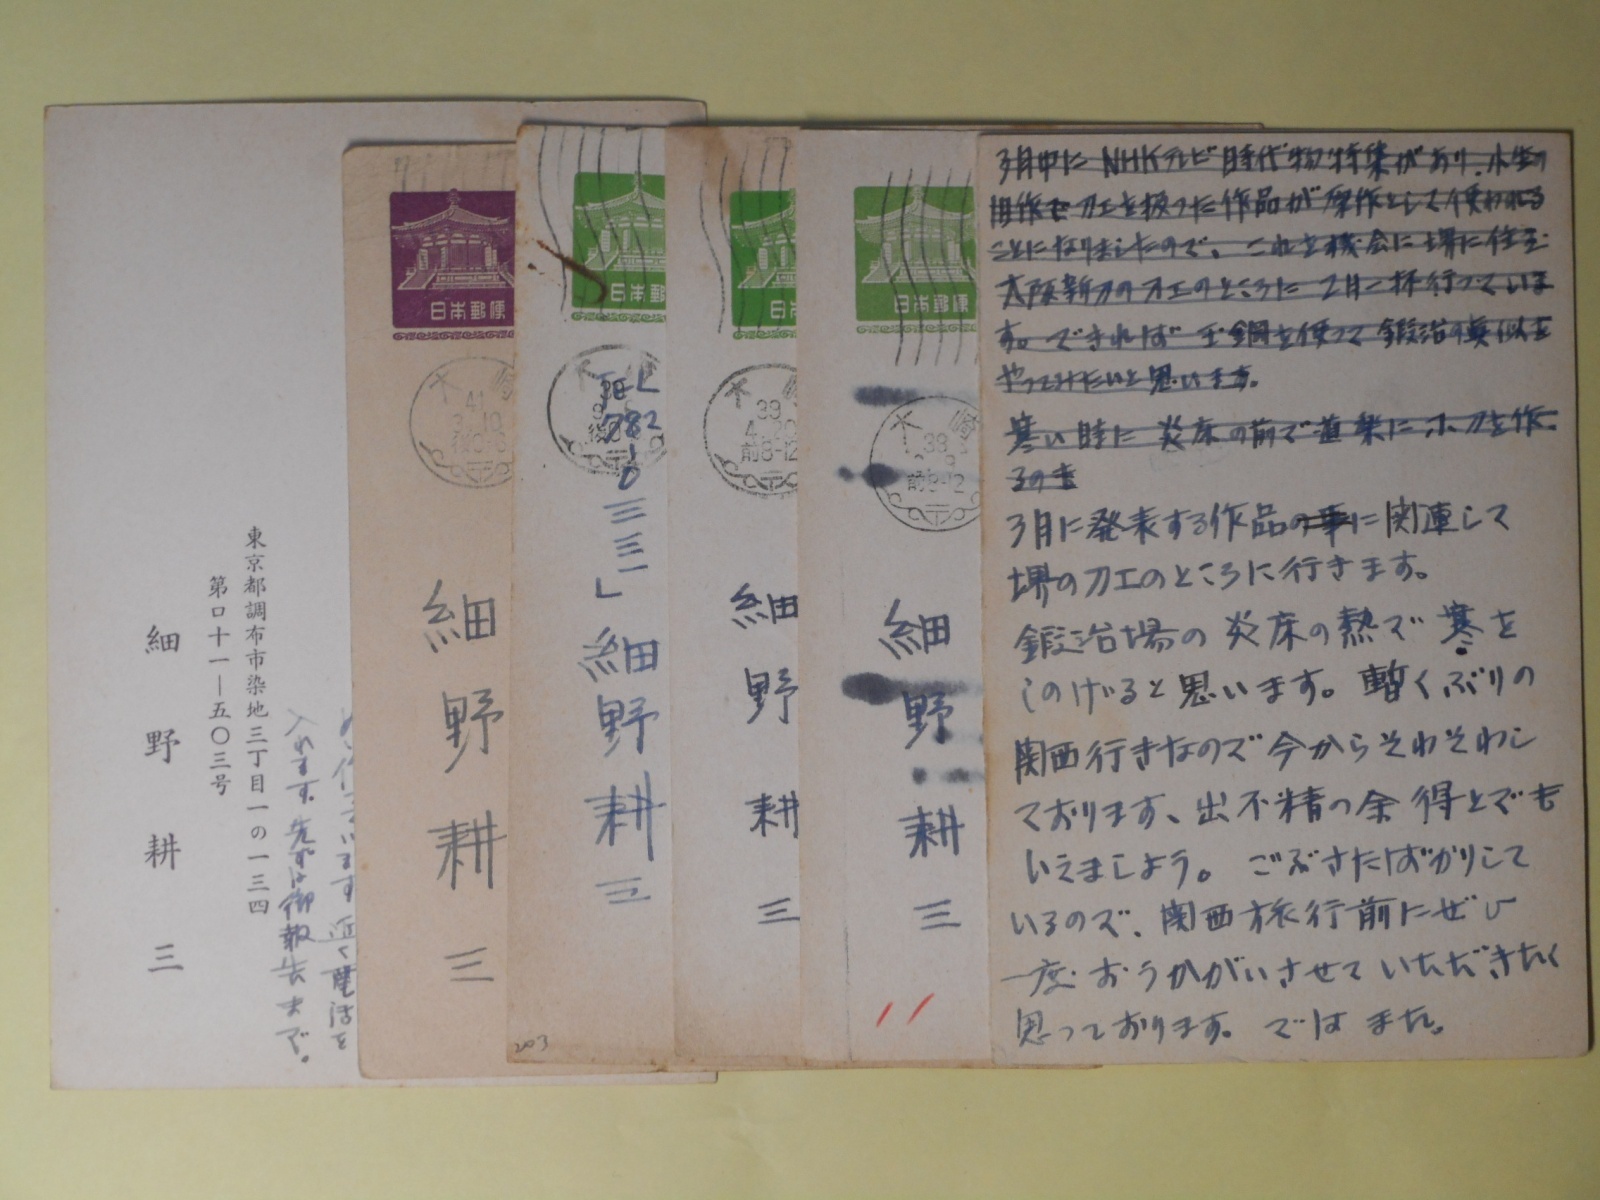 東京都調布市染地三丁目一の一三四
第ロ十一―五〇三号
細野耕三
近く電話を
入れます。先ずは御報告まで。
日本郵便
41
3.10
細野耕三
日本郵
TEL
細野耕三
203
日本
33
4.20
前8-12
細野耕三
日本郵便
38
細野耕三
3月中にNHKテレビ時代物特集があり、小生の
旧作で刀工を扱った作品が傑作として使われる
ことになりましたので、これを機会に堺に住む
大阪新刀の刀工のところに2月一杯行っていま
す。できれば玉鋼を使って鍛治の真似を
やってみたいと思います。
寒い時に炎床の前で道楽に小刀を作
るのも
3月に発表する作品の事に関連して
堺の刀工のところに行きます。
鍛治場の炎床の熱で寒を
しのげると思います。暫くぶりの
関西行きなので今からそわそわし
ております、出不精の余得とでも
いえましよう。ごぶさたばかりして
いるので、関西旅行前にぜひ
一度おうかがいさせていただきたく
思っております。ではまた。